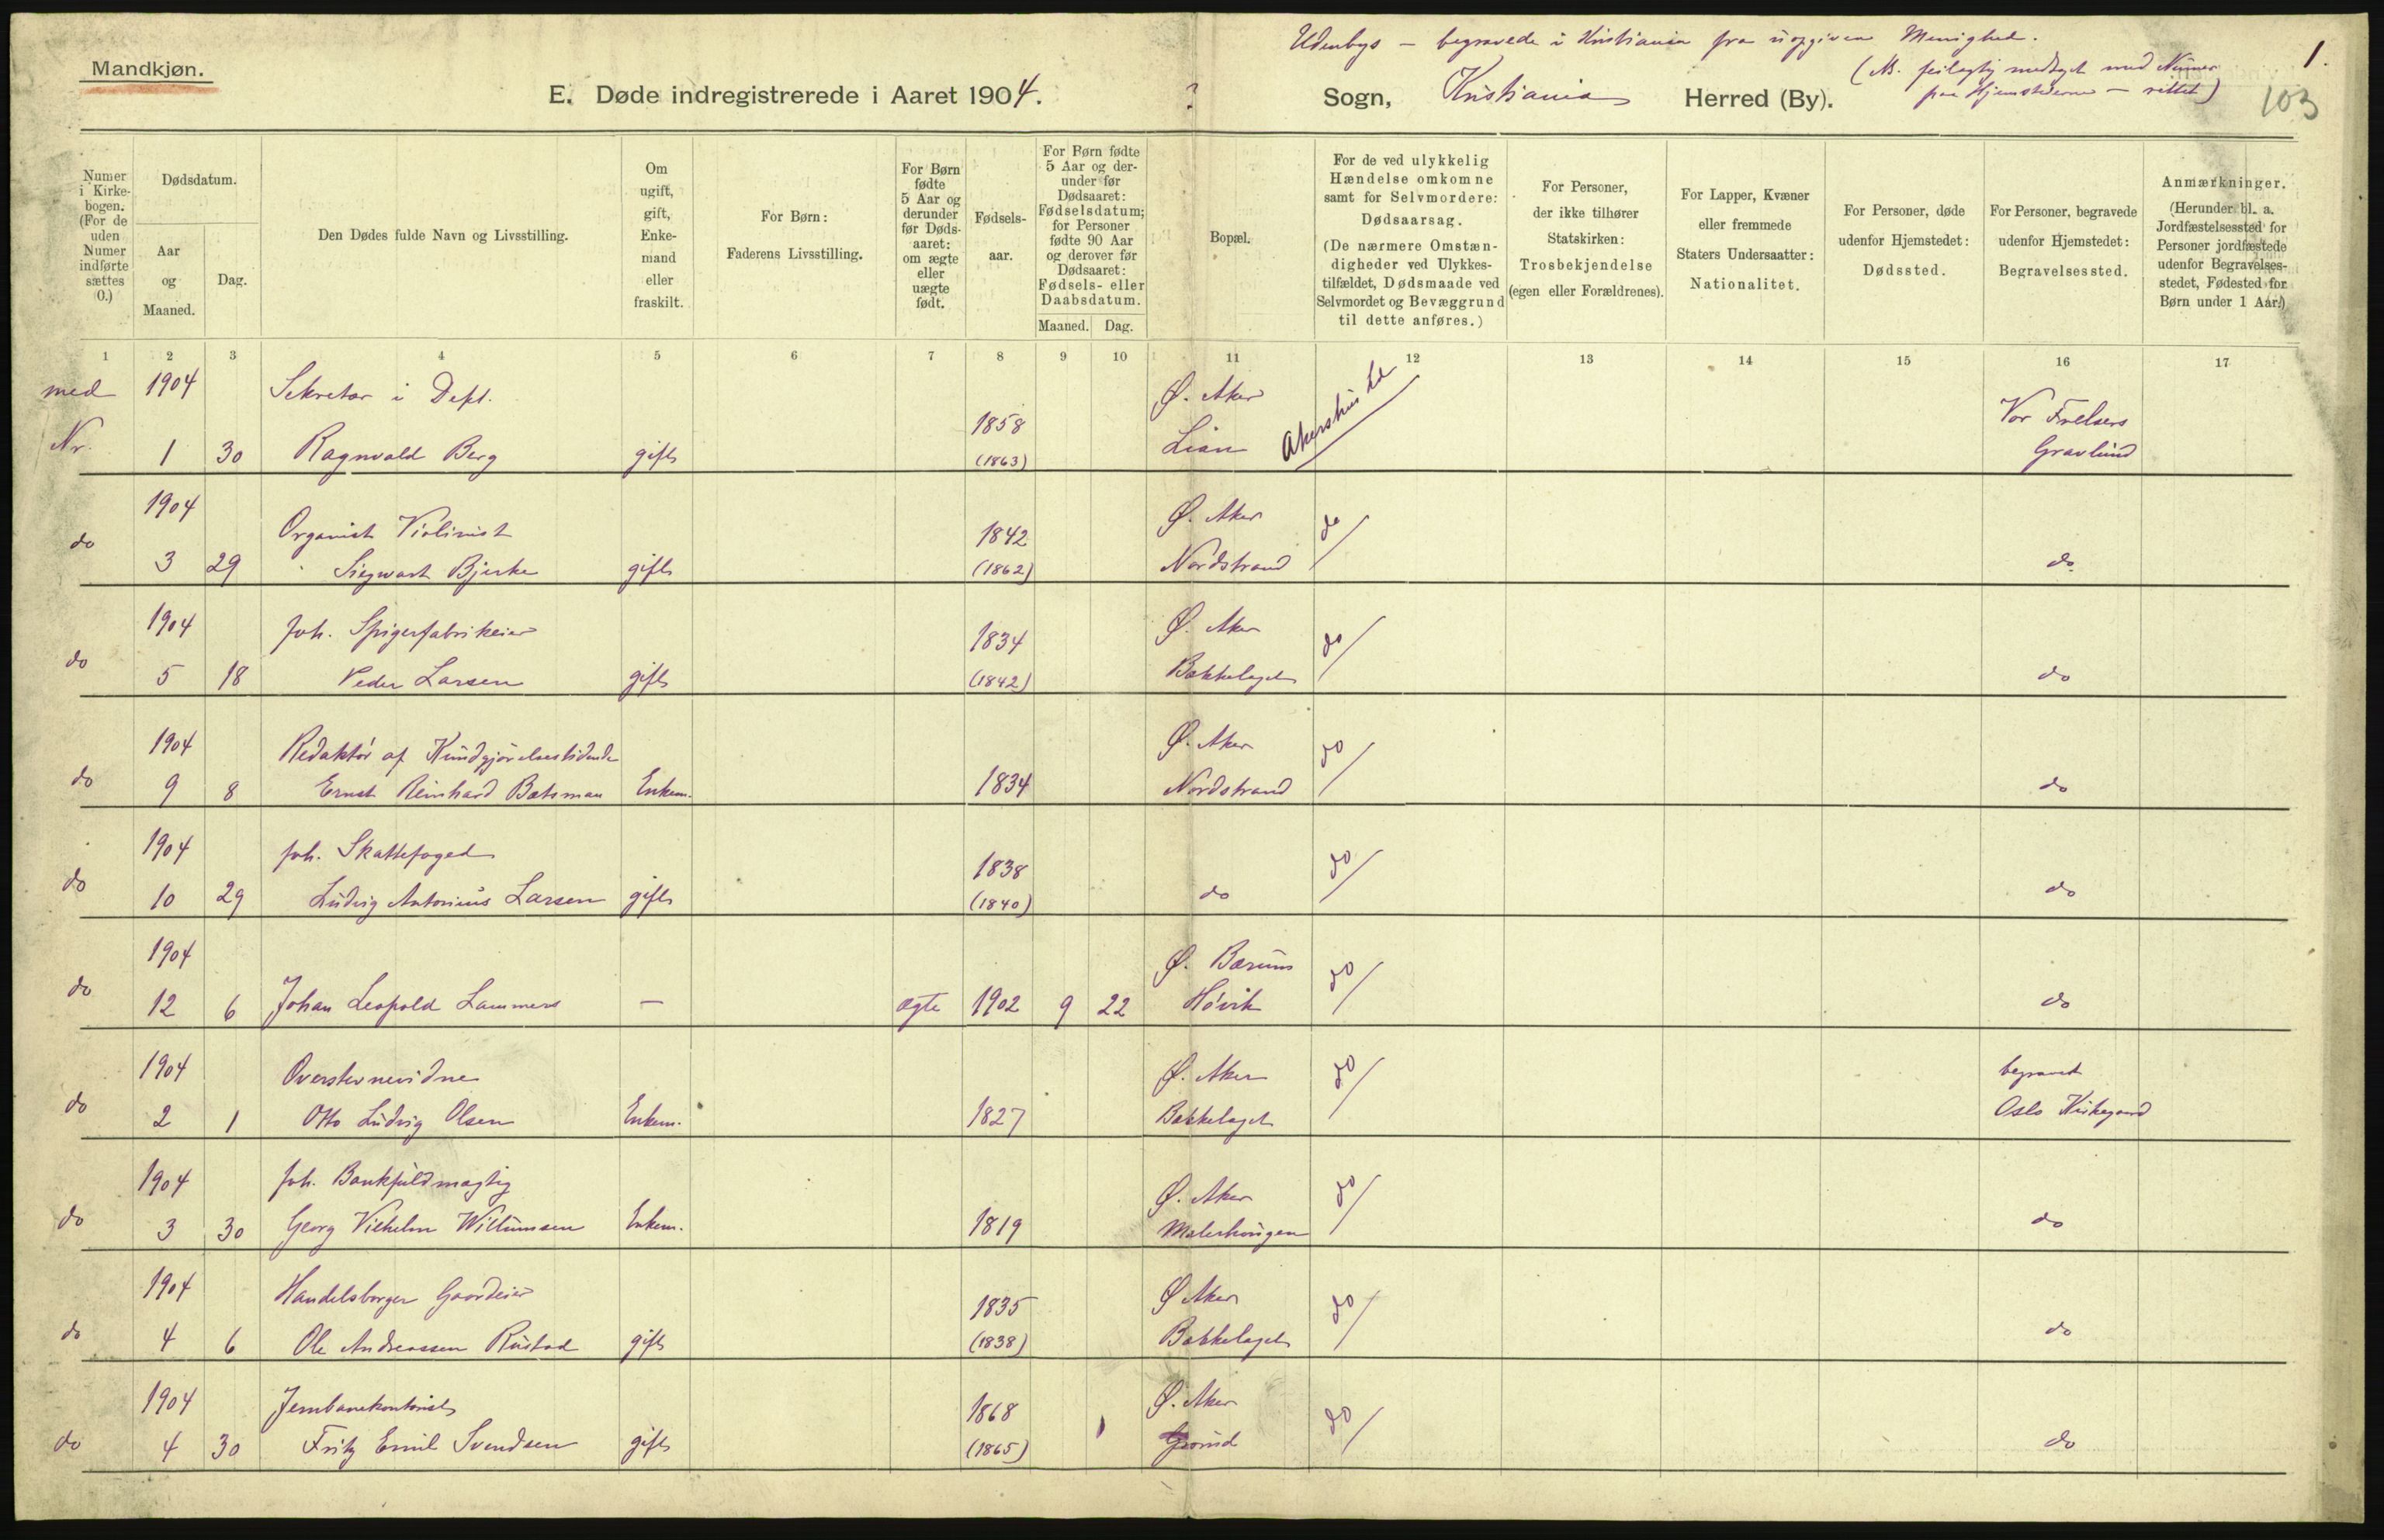 Udenbys – begravede i Kristiania fra uopgiven Menighed.
1.
Mandkjøn.
(NB. feilagtig medtaget med Numer
paa Hjemstederne – rettet)
103
E. Døde indregistrerede i Aaret 1904. ? Sogn, Kristiania Herred (By).
Numer i Kirkebogen. (For de uden Numer indførte sættes 0.)
Dødsdatum.
Aar og Maaned.
Dag.
Den Dødes fulde Navn og Livsstilling.
Om ugift, gift, Enkemand eller fraskilt.
For Børn: Faderens Livsstilling.
For Børn fødte 5 Aar og derunder før Dødsaaret: om ægte eller uægte født.
Fødselsaar.
For Børn fødte 5 Aar og derunder før Dødsaaret: Fødselsdatum; for Personer fødte 90 Aar og derover før Dødsaaret: Fødsels- eller Daabsdatum.
Maaned. Dag.
Bopæl.
For de ved ulykkelig Hændelse omkomne samt for Selvmordere: Dødsaarsag. (De nærmere Omstændigheder ved Ulykkestilfældet, Dødsmaade ved Selvmordet og Bevæggrund til dette anføres.)
For Personer, der ikke tilhører Statskirken: Trosbekjendelse (egen eller Forældrenes).
For Lapper, Kvæner eller fremmede Staters Undersaatter: Nationalitet.
For Personer, døde udenfor Hjemstedet: Dødssted.
For Personer, begravede udenfor Hjemstedet: Begravelsessted.
Anmærkninger. (Herunder bl. a. Jordfæstelsessted for Personer jordfæstede udenfor Begravelsesstedet, Fødested for Børn under 1 Aar.)
1 2 3 4 5 6 7 8 9 10 11 12 13 14 15 16 17
med 1904 Sekretær i Dept. 1858 Ø. Aker Akershus Vor Frelsers
Nr. 1 30 Ragnvald Berg gift (1863) Lian Gravlund
1904 Organist Violinist 1842 Ø. Aker do
do 3 29 Siegwart Bjerke gift (1862) Nordstrand do
1904 fvh. Spigerfabrikeier 1834 Ø. Aker do
do 5 18 Peder Larsen gift (1842) Bækkelaget do
1904 Redaktør af Kundgjørelsestidende Ø. Aker do
do 9 8 Ernst Reinhard Bætsman Enkem. 1834 Nordstrand do
1904 fvh. Skattefoged 1838 do
do 10 29 Ludvig Antonius Larsen gift (1840) do do
1904 Ø. Bærum do
do 12 6 Johan Leopold Lammers – ægte 1902 9 22 Høvik do
1904 Overstevnevidne Ø. Aker do begravet
do 2 1 Otto Ludvig Olsen Enkem. 1827 Bækkelaget Oslo Kirkegaard
1904 fvh. Bankfuldmægtig Ø. Aker do
do 3 30 Georg Vilhelm Willumsen Enkem. 1819 Malerhaugen do
1904 Handelsborger Gaardeier 1835 Ø Aker do
do 4 6 Ole Andreassen Rustad gift (1838) Bækkelaget do
1904 Jernbanekontorist 1868 Ø. Aker do
do 4 30 Fritz Emil Svendsen gift (1865) Grorud do